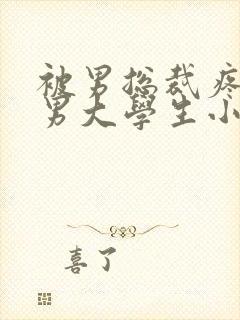 被男总裁疼
男大學生小
喜了